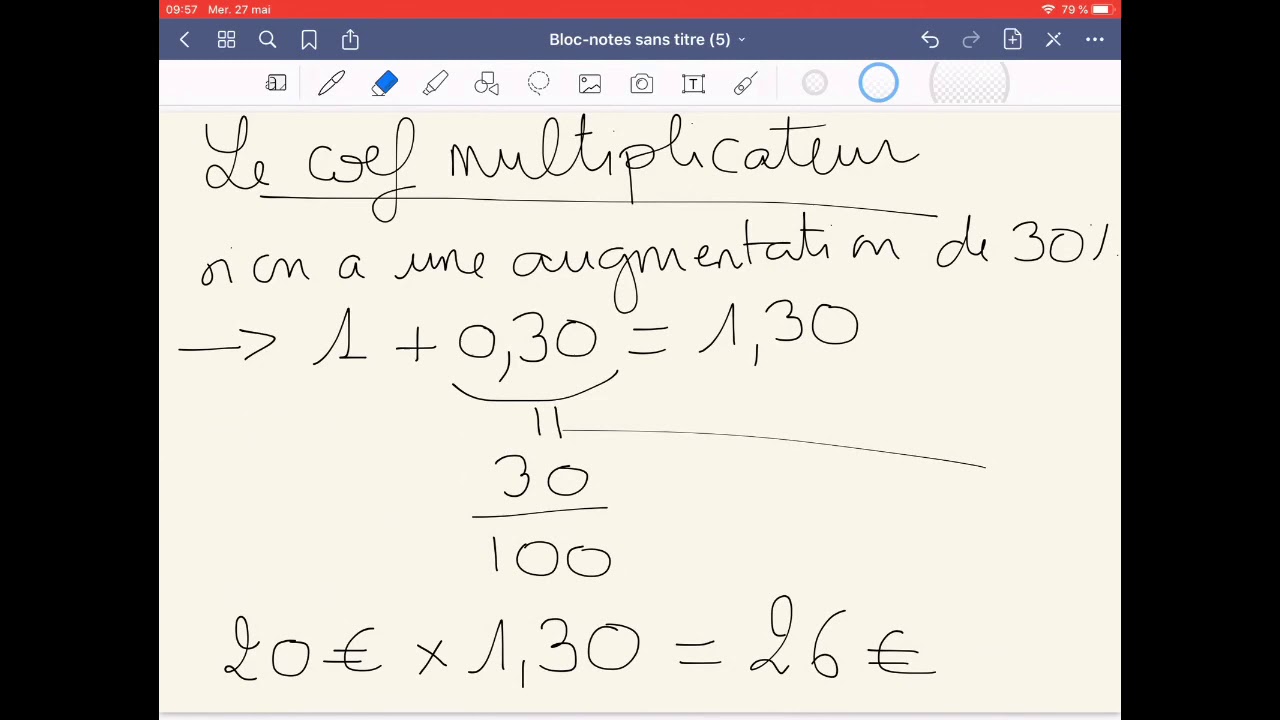 09:57 Mer. 27 mai 79 %
Bloc-notes sans titre (5)
T
Le coef multiplicateur
si on a une augmentation de 30%
→ 1 + 0,30 = 1,30
=
30
100
20 € x 1,30 = 26 €